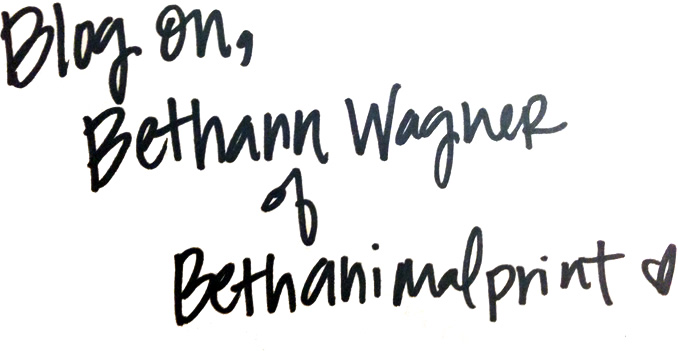 Blog on,
Bethann Wagner
of
Bethanimalprint ♡